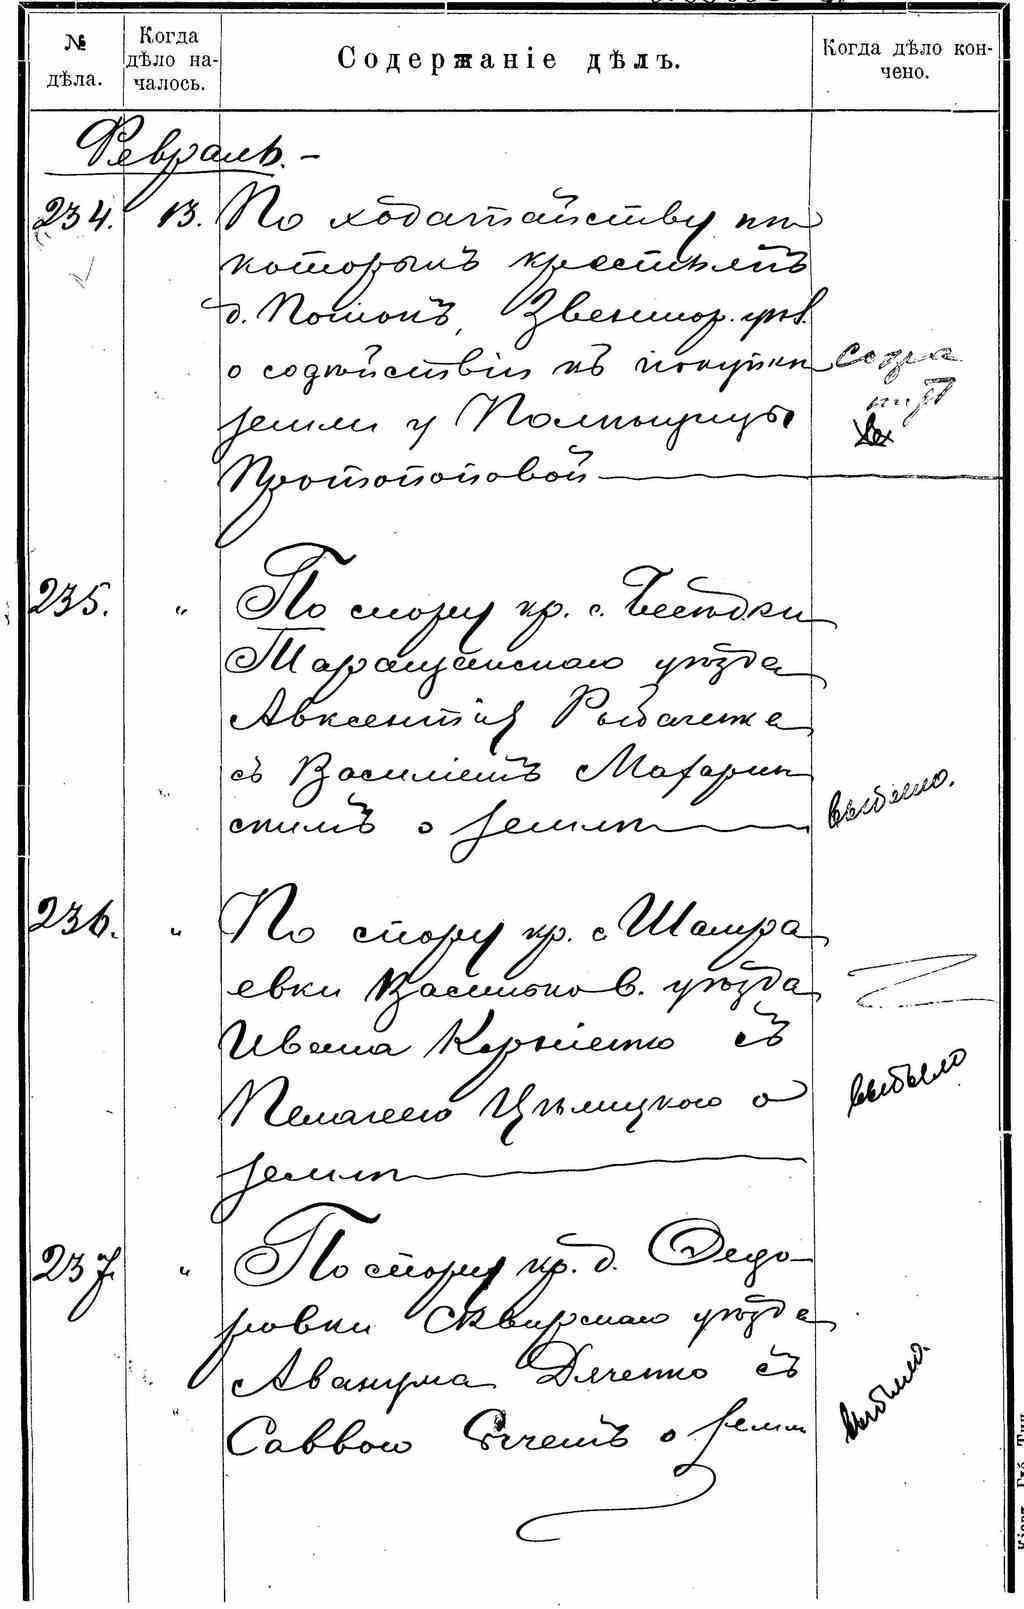 № дѣла.
Когда дѣло началось.
Содержаніе дѣлъ.
Когда дѣло кончено.
Февраль.
234. 13. По ходатайству нѣ
которыхъ крестьянъ
д. Потокъ, Звенигор. уѣз.
о содѣйствіи къ покупкѣ
земли у Помѣщицы
Протопоповой
235. " По спору кр. с. Бесѣдки
Таращанскаго уѣзда
Авксентія Рыбаченка
съ Василіемъ Макарин
скимъ о землѣ
выбыло.
236. " По спору кр. с Шамра
евки Васильков. уѣзда
Ивана Корніенко съ
Пелагеею о
землѣ
выбыло
237. " По спору кр. д. Федо-
ровки Сквирскаго уѣзда
Авакума Дяченко съ
Саввою о земл
выбыло.